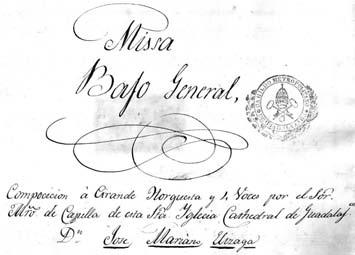 Missa
Bajo General,
Composicion à Grande Horquesta y 4 Voces por el Sôr.
Mtrô de Capilla de esta Stâ Yglecia Cathedral de Guadalajª
Dn. Jose Mariano Elizaga